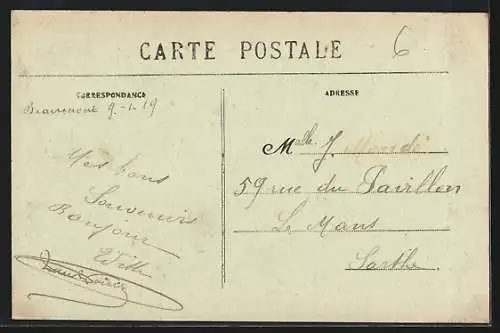 CARTE POSTALE
6
CORRESPONDANCE
Beaumont 9-1-19
Mes bons
Souvenirs
Bonjour
ADRESSE
Mlle J. Mondé
59 rue du Pavillon
Le Mans
Sarthe.